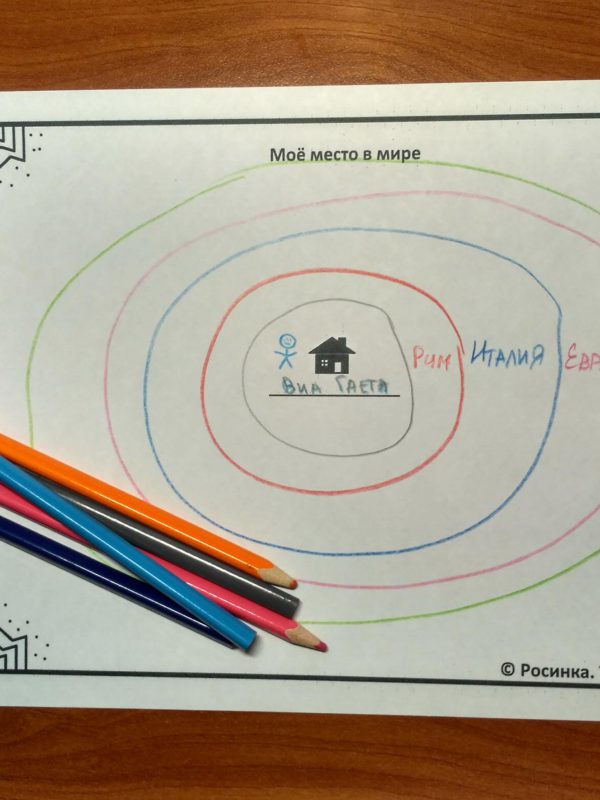 Моё место в мире
Виа Гаета
Рим
Италия
© Росинка.